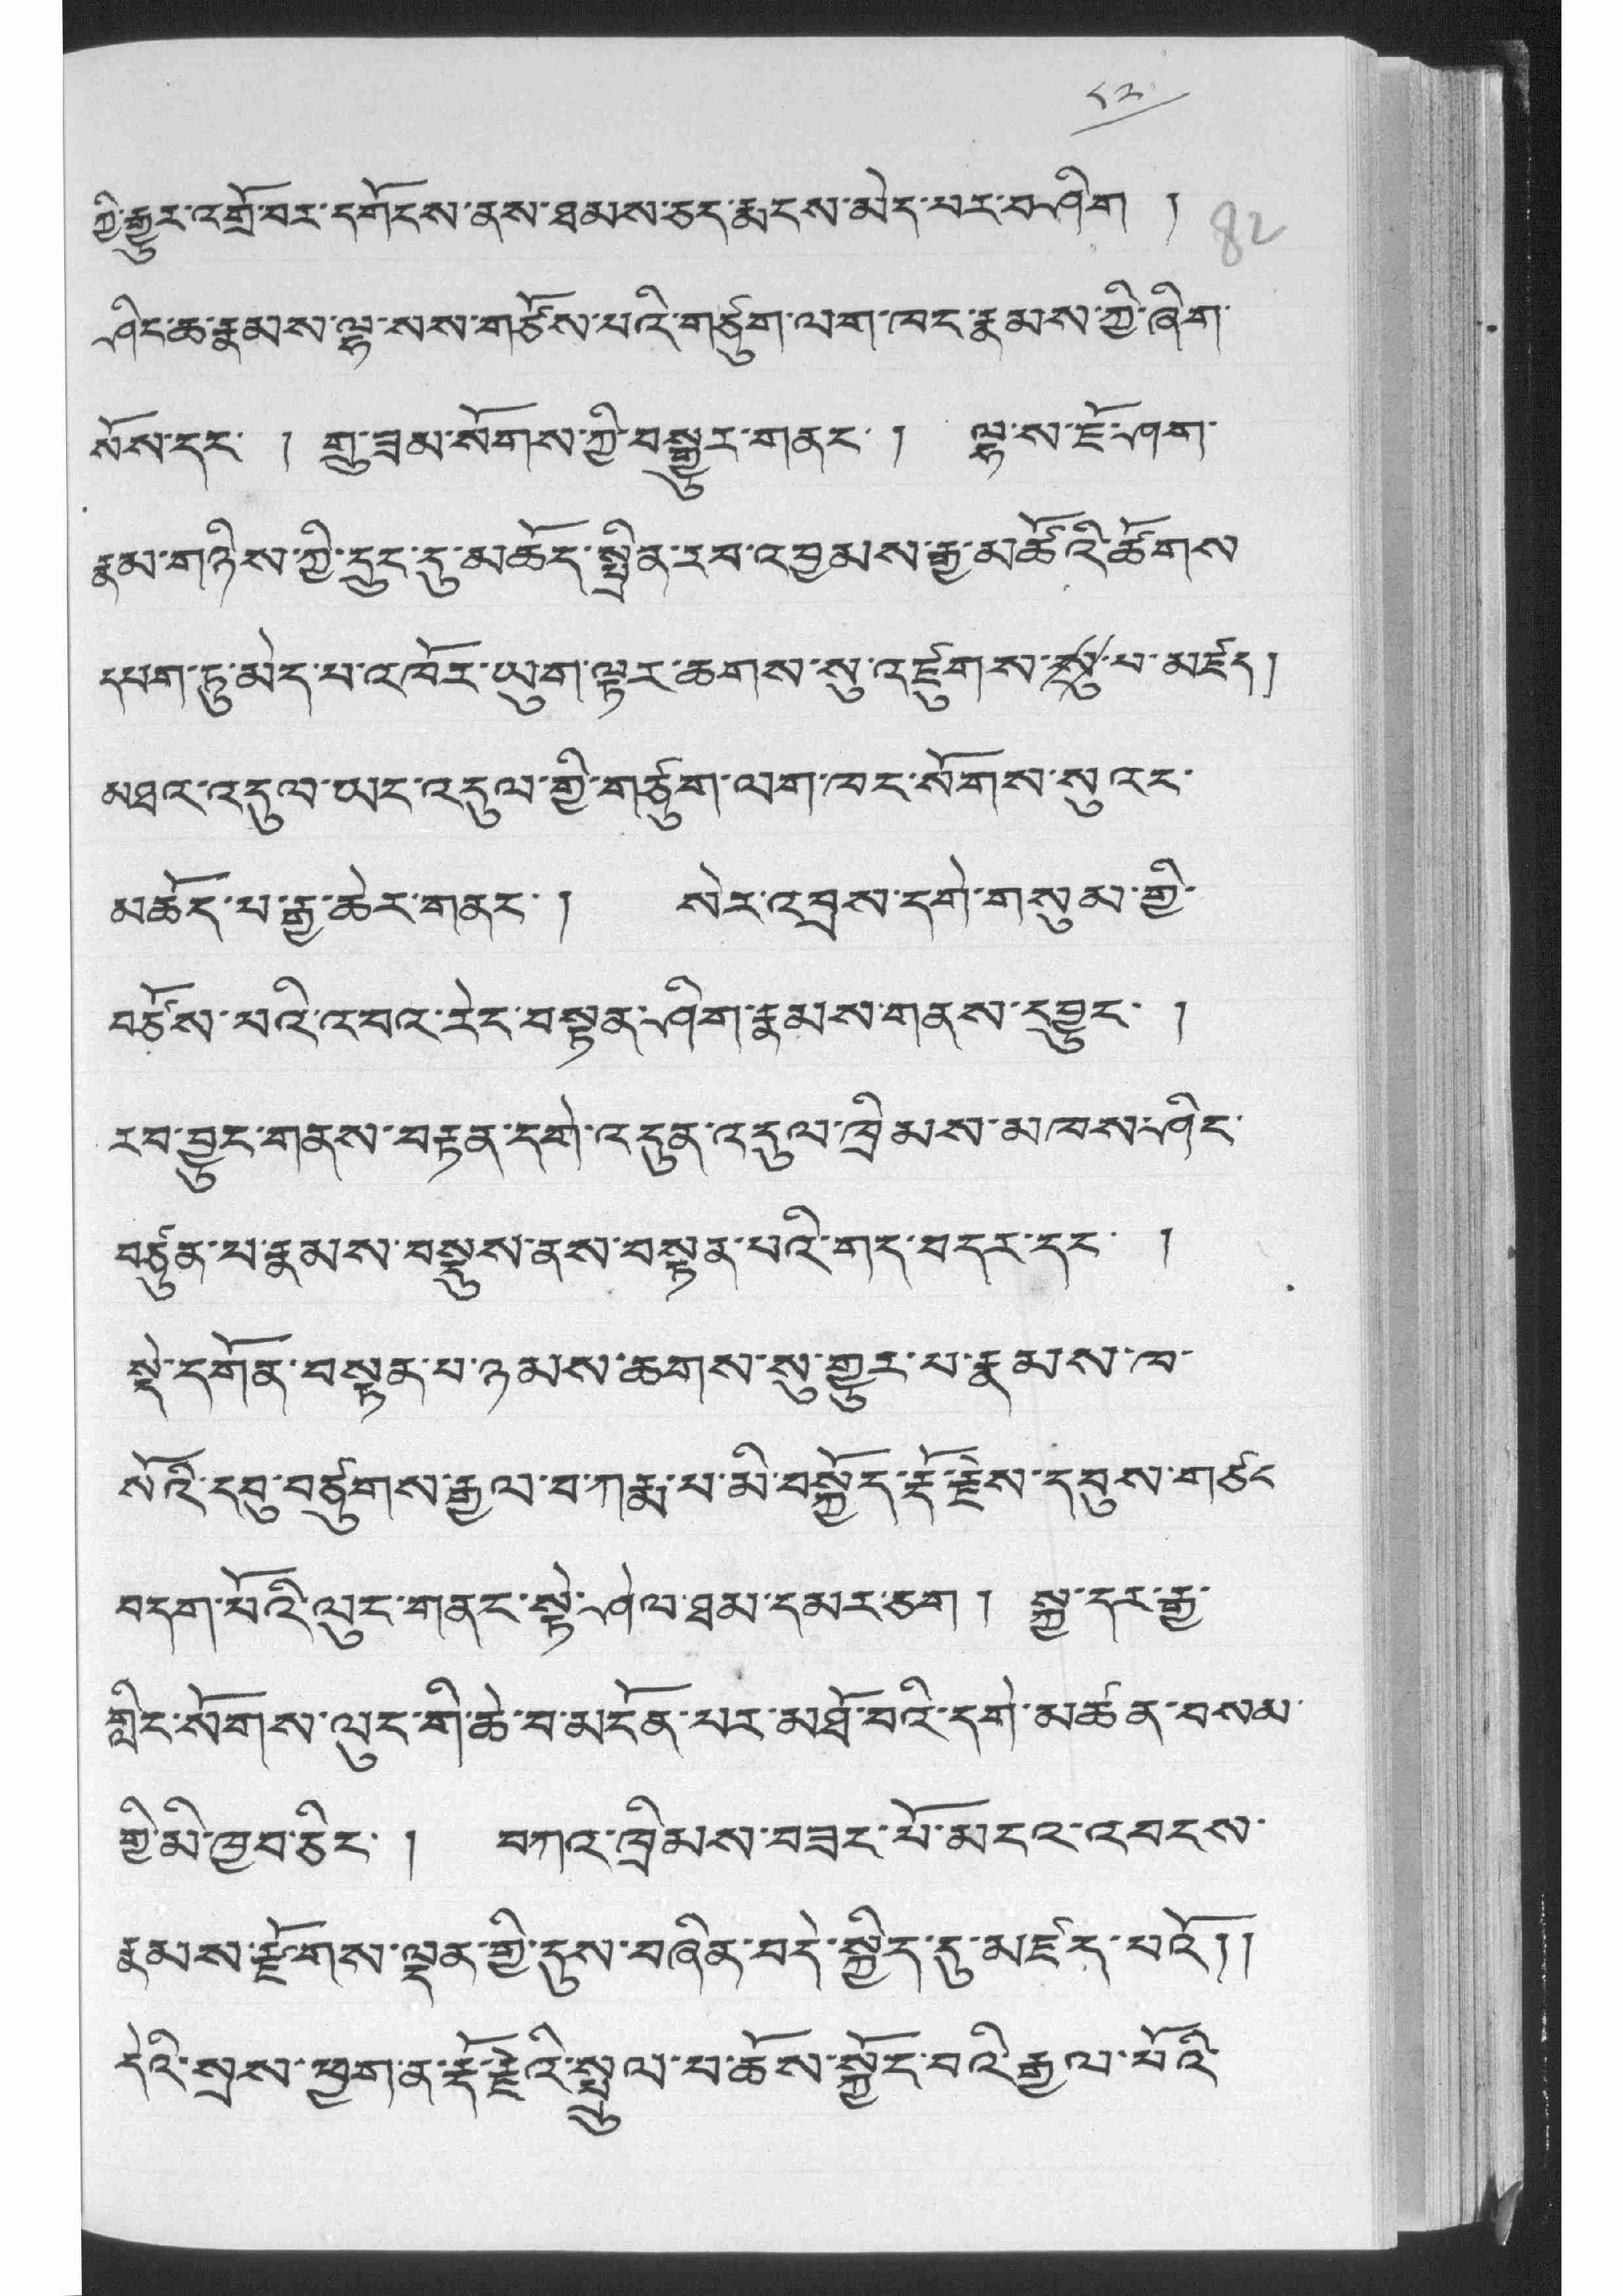 ༨༢
82
ཀྱི་རྒྱུར་འགྲོ་བར་དགོངས་ནས་ཐམས་ཅད་རྨངས་མེད་པར་བཤིག །
ཤིང་ཆ་རྣམས་ལྷ་སས་གཙོས་པའི་གཙུག་ལག་ཁང་རྣམས་ཀྱི་ཞིག་
སོས་དང་ ། གྲུ་ཟམ་སོགས་ཀྱི་བསྒྱུར་གནང་ ། ལྷ་ས་ཇོ་ཤག་
རྣམ་གཉིས་ཀྱི་དྲུང་དུ་མཆོད་སྤྲིན་རབ་འབྱམས་རྒྱ་མཚོའི་ཚོགས་
དཔག་ཏུ་མེད་པ་འཁོར་ཡུག་ལྟར་ཆགས་སུ་འཛུགས་པ་མཛད།
མཐའ་འདུལ་ཡང་འདུལ་གྱི་གཙུག་ལག་ཁང་སོགས་སུ་འང་
མཆོད་པ་རྒྱ་ཆེར་གནང་ ། སེར་འབྲས་དགེ་གསུམ་གྱི་
བཙོས་པའི་འབའ་རེང་བསྟན་ཤིག་རྣམས་གནས་དབྱུང་ །
རབ་བྱུང་གནས་བརྟན་དགེ་འདུན་འདུལ་ཁྲིམས་མཁས་ཤིང་
བཙུན་པ་རྣམས་བསྡུས་ནས་བསྟན་པའི་གད་བདར་དང་ །
སྡེ་དགོན་བསྟན་པ་ཉམས་ཆགས་སུ་གྱུར་པ་རྣམས་ཁ་
སོའི་དབུ་བཙུགས་རྒྱལ་བ་ཀརྨ་པ་མི་བསྐྱོད་རྡོ་རྗེས་དབུས་གཙང
བདག་པོའི་ལུང་གནང་སྟེ་ཤེལ་ཐམ་དམར་ཅག ། སྐྱ་དར་རྒྱ་
གླིང་སོགས་ལུང་གི་ཆེ་བ་མངོན་པར་མཐོ་བའི་དགེ་མཚན་བསམ་
གྱི་མི་ཁྱབ་ཅིང་ ། བཀའ་ཁྲིམས་བཟང་པོ་མངའ་འབངས་
རྣམས་རྫོགས་ལྡན་གྱི་དུས་བཞིན་བདེ་སྐྱིད་དུ་མཛད་པའོ།།
དེའི་སྲས་ཕྱག་ན་རྡོ་རྗེའི་སྤྲུལ་པ་ཆོས་སྐྱོད་བའི་རྒྱལ་པོའི་